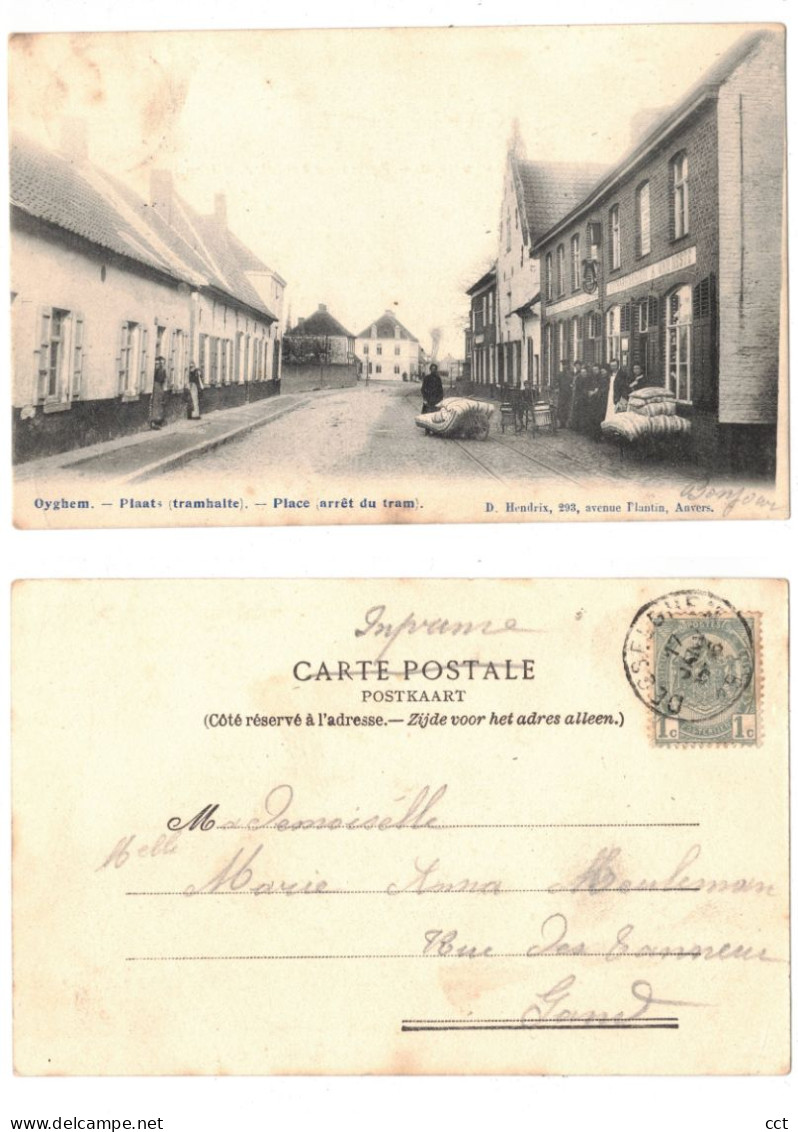 Oyghem. — Plaats (tramhalte). — Place (arrêt du tram).
D. Hendrix, 293, avenue Plantin, Anvers.
Bonjour
Imprimé
CARTE POSTALE
POSTKAART
(Côté réservé à l'adresse.— Zijde voor het adres alleen.)
DESSELGHEM
1c 1c
Mademoiselle
Melle Marie Anna Meuleman
Rue des Tanneur
Gand
www.delcampe.net
cct